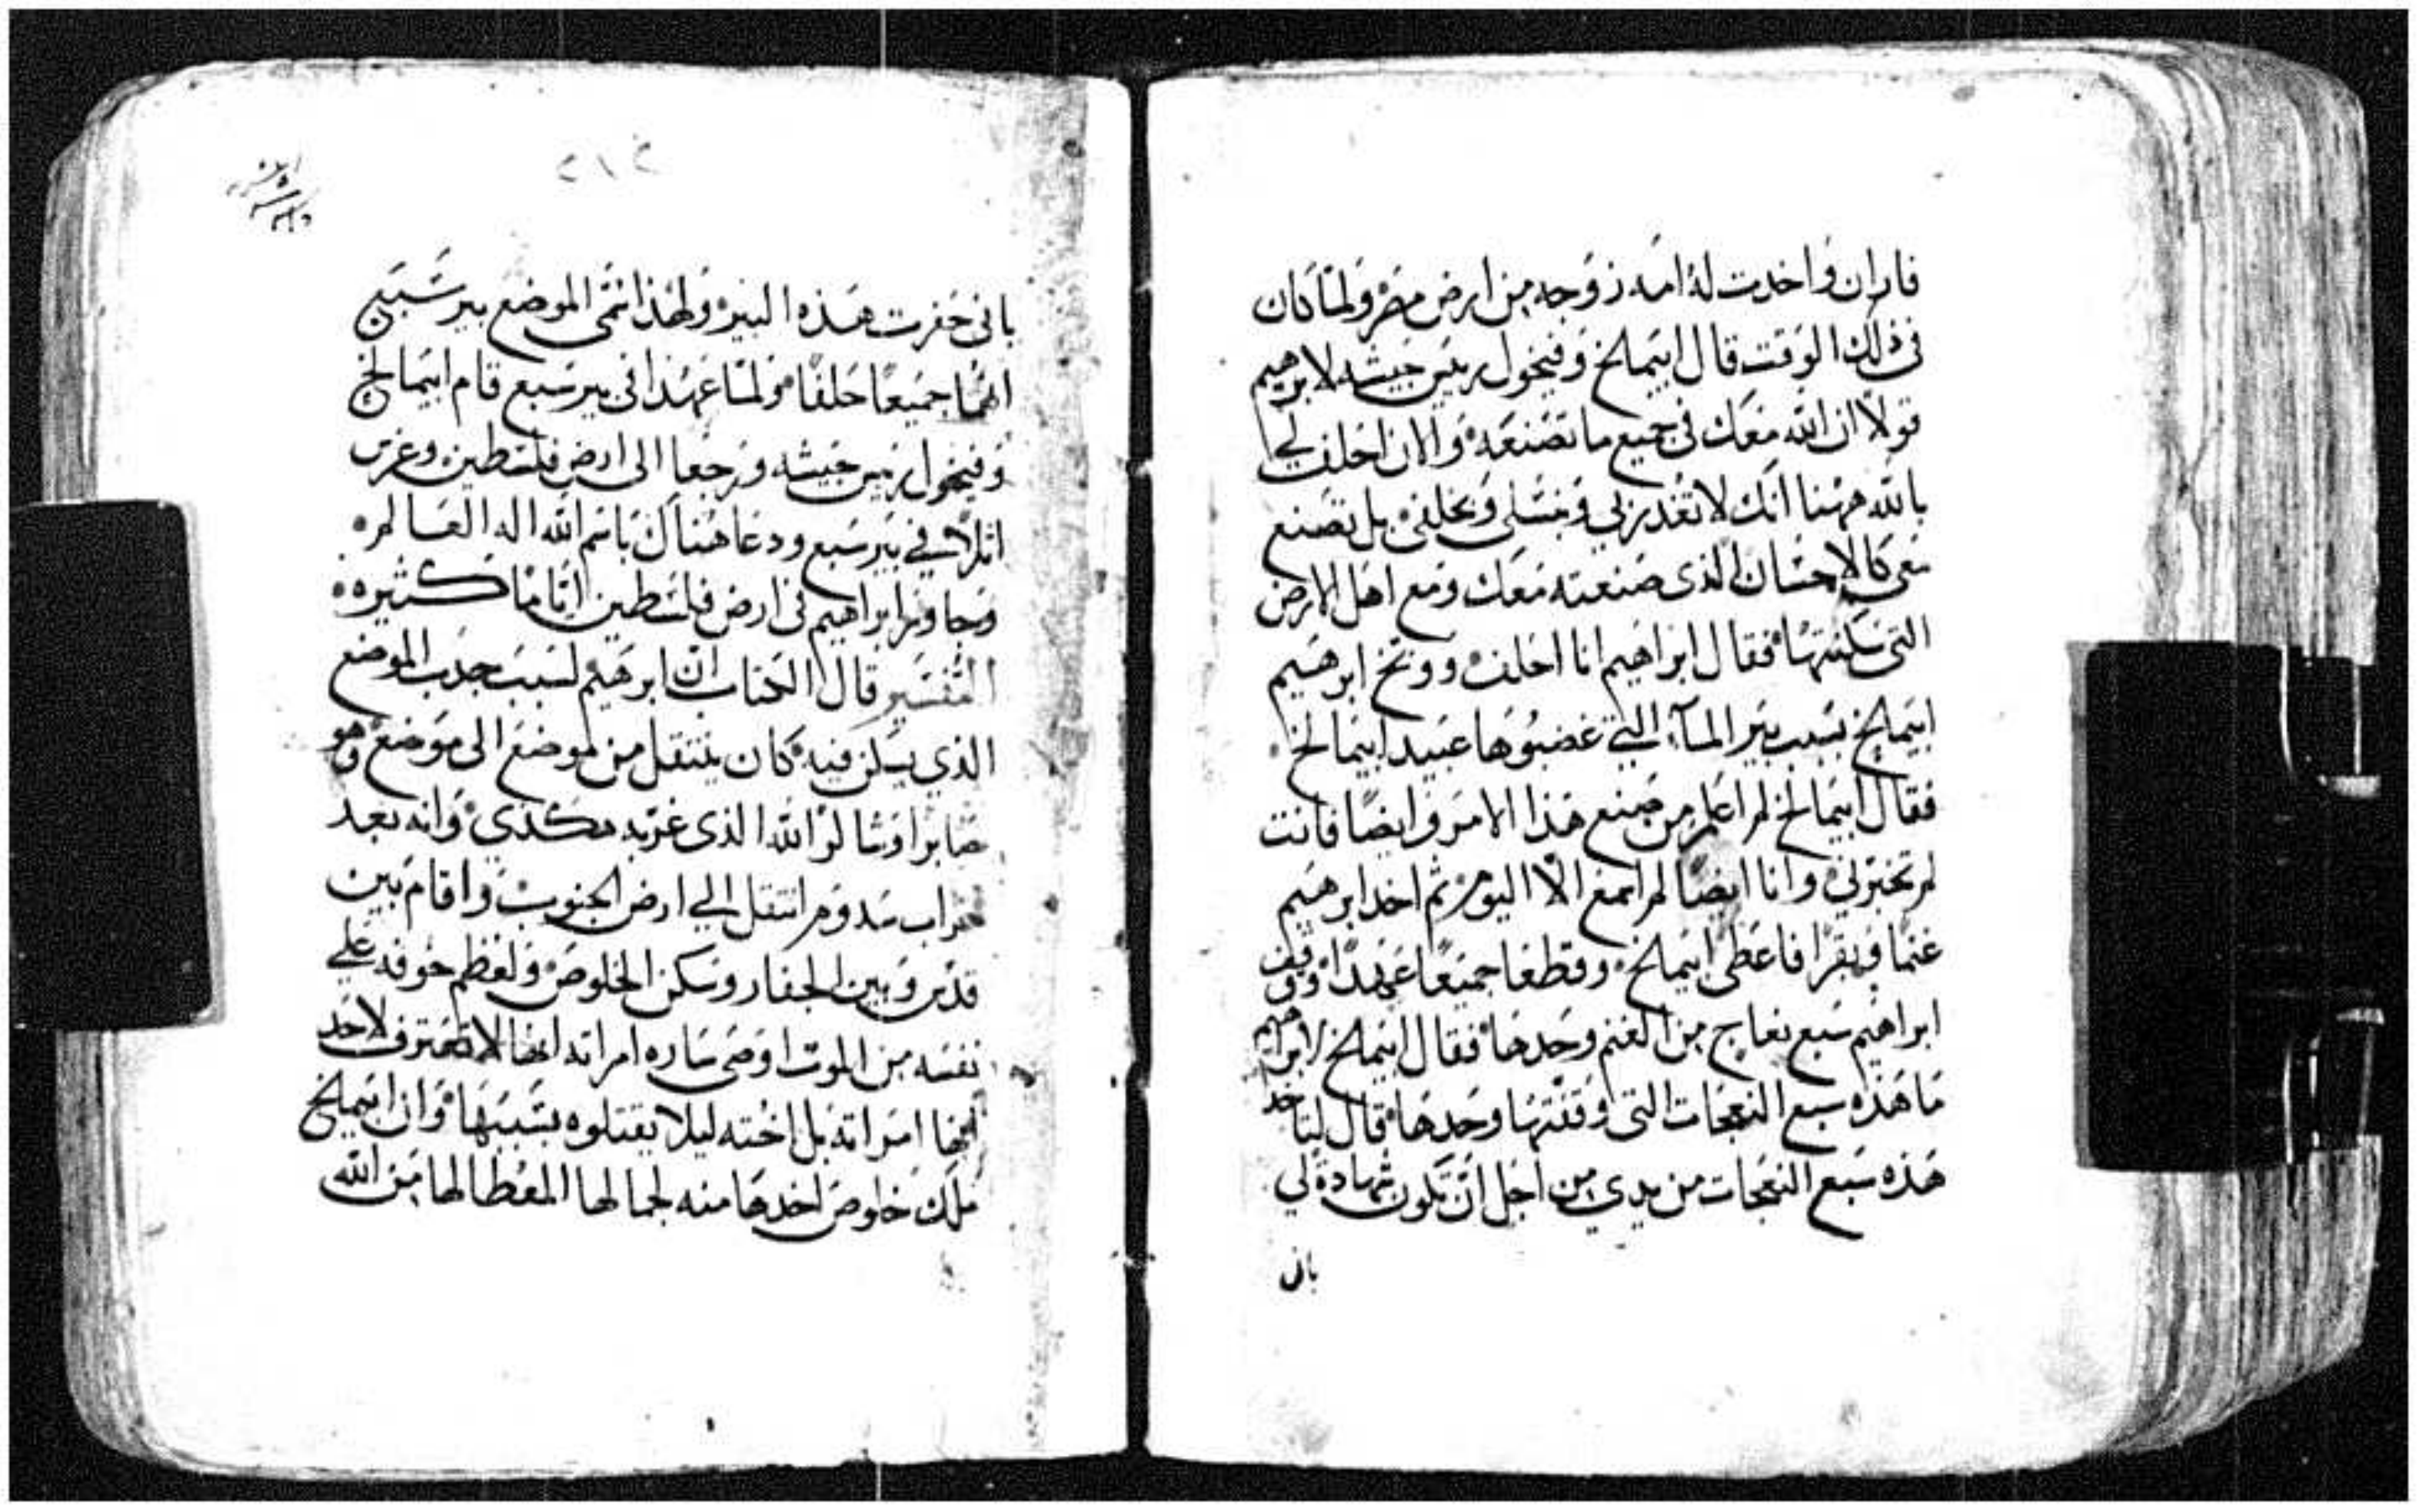 فاران واخدت له امه زوجه من ارض مصر ولما كان
في ذلك الوقت قال ابيمالخ وفيخول رييس جيشه لابرهيم
قولا ان الله معك في جميع ما تصنعه والان احلف لي
بالله ههنا انك لا تغدر بي وبنسلي وبخلفي بل تصنع
معي كالاحسان الذي صنعته معك ومع اهل الارض
التي سكنتها فقال ابراهيم انا احلف ووبخ ابرهيم
ابيمالخ بسبب بير المآء التي غضبوها عبيد ابيمالخ
فقال ابيمالخ لم اعلم من صنع هذا الامر وايضا فانت
لم تخبرني وانا ايضا لم اسمع الا اليوم ثم اخد ابرهيم
غنما وبقرا فاعطى ابيمالخ وقطعا جميعا عهدا ووقف
ابراهيم سبع نعاج من الغنم وحدها فقال ابيمالخ لابراهيم
ما هذه سبع النعجات التي وقفتها وحدها قال لتاخد
هذه سبع النعجات من يدي من اجل ان تكون شهادة لي
باني
٢١٤
باني حفرت هذه البير ولهذا سمي الموضع بير سبع
انهما جميعا حلفا ولما عهدا في بير سبع قام ابيمالخ
وفيخول رييس جيشه ورجعا الى ارض فلسطين وغرس
اثلا في بير سبع ودعا هناك باسم الله اله العالم
وجاور ابراهيم في ارض فلسطين اياما كثيره
التفسير قال الكتاب ان ابرهيم لسبب جدب الموضع
الذي يسكن فيه كان ينتقل من موضع الى موضع وهو
صابرا وشاكرا لله الذي غربه هكذي وانه بعد
خراب سدوم انتقل الي ارض الجنوب واقام بين
قدس وبين الجفار وسكن الخلوص ولعظم خوفه علي
نفسه من الموت اوصى ساره امراته انها لا تعترف لاحد
انها امراته بل اخته ليلا يقتلوه بسببها وان ابيمالخ
ملك خلوص اخدها منه لجمالها المعطا لها من الله